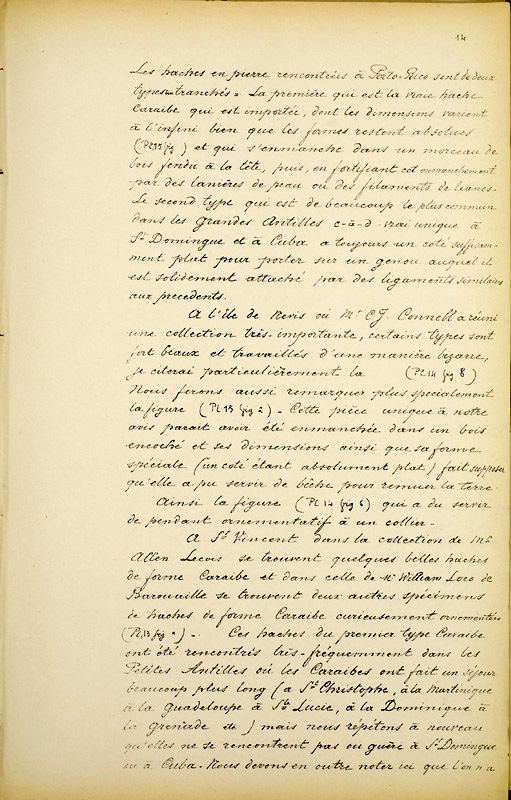 14
Les haches en pierre rencontrées à Porto-Rico sont de deux
types tranchés = La première qui est la vraie hache
Caraibe qui est importée, dont les dimensions varient
à l'infini bien que les formes restent absolues
(Pl 15 fig ) et qui s'enmanche dans un morceau de
bois fendu à la tête, puis, en fortifiant cet enmanchement
par des lanières de peau ou des filaments de lianes.
Le second type qui est de beaucoup le plus commun
dans les Grandes Antilles c-à-d vrai unique à
St Domingue et à Cuba a toujours un coté suffisam-
ment plat pour porter sur un genou auquel il
est solidement attaché par des ligaments similaires
aux precedents.
A l'île de Nevis où Mr C.J. Connell a réuni
une collection très-importante, certains types sont
fort beaux et travaillés d'une manière bizarre,
je citerai particulièrement la (Pl 14 fig 8)
Nous ferons aussi remarquer plus spécialement
la figure (Pl 13 fig 2) - Cette pièce unique à notre
avis parait avoir été enmanchée dans un bois
encoché et ses dimensions ainsi que sa forme
spéciale (un coté étant absolument plat) fait supposer
qu'elle a pu servir de bêche pour remuer la terre
Ainsi la figure (Pl 14 fig 6) qui a du servir
de pendant ornementatif à un collier -
A St Vincent dans la collection de Mr
Allen Lewis se trouvent quelques belles haches
de forme Caraibe et dans celle de Mr William Loco de
Barouaille se trouvent deux autres spécimens
de haches de forme Caraibe curieusement ornementées
(Pl 13 fig ) - Ces haches du premier type Caraibe
ont été rencontrés très-fréquemment dans les
Petites Antilles où les Caraibes ont fait un séjour
beaucoup plus long (a St Christophe, à la Martinique
à la Guadeloupe à Ste Lucie, à la Dominique à
la Grenade etc ) mais nous répétons à nouveau
qu'elles ne se rencontrent pas ou guère à St Domingue
ou à Cuba - Nous devons en outre noter ici que l'on n'a